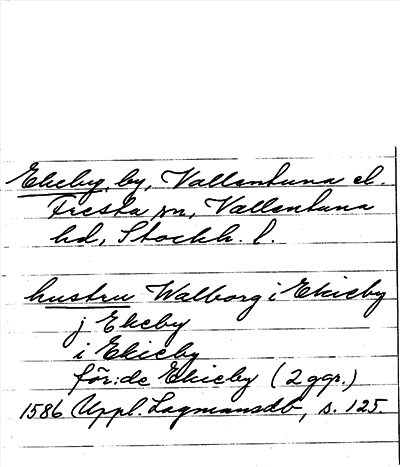 Ekeby, by, Vallentuna el.
Fresta sn, Vallentuna
hd, Stockh. l.
hustru Walborg i Ekieby
j Ekeby
i Ekieby
för:de Ekieby (2 ggr.)
1586 Uppl. Lagmansdb, s. 125.